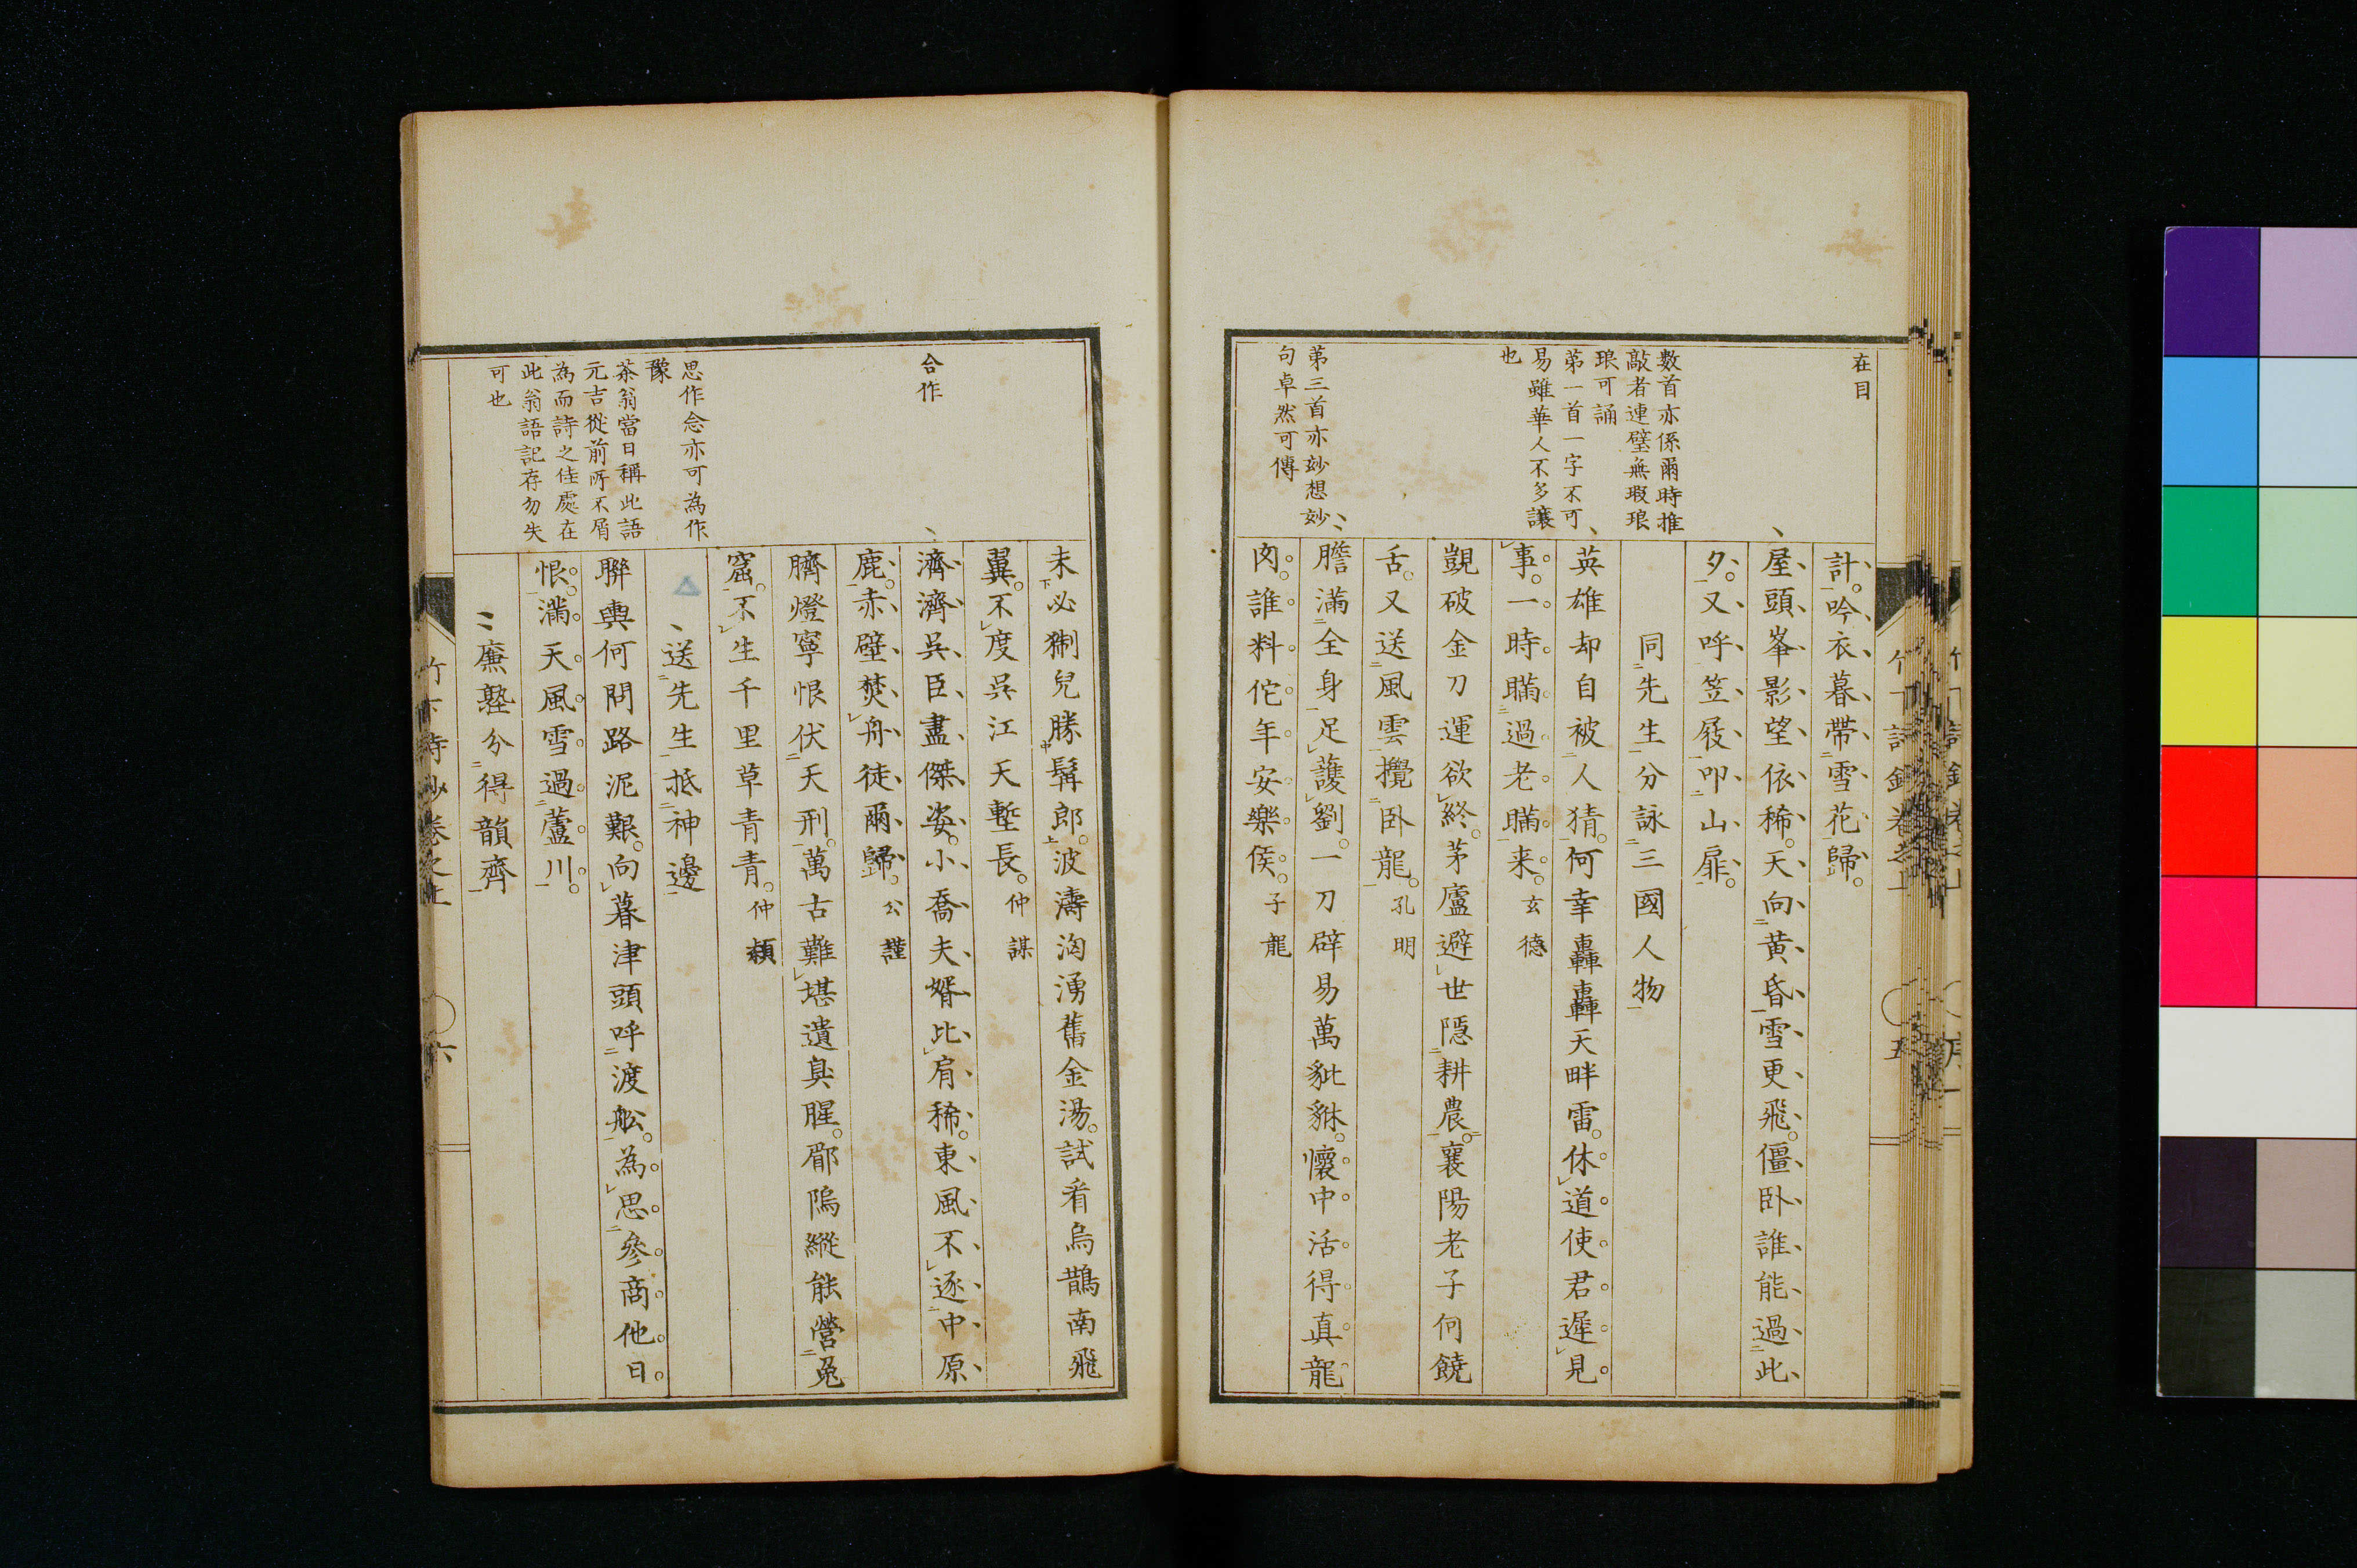 在目
數首亦係爾時推
敲者連璧無瑕琅
琅可誦
第一首一字不可
易雖華人不多讓
也
第三首亦妙想妙
句卓然可傳
計吟衣暮帶雪花歸
屋頭峯影望依稀天向黃昏雪更飛僵臥誰能過此
夕又呼笠屐叩山扉
同先生分詠三國人物
英雄却自被人猜何幸轟轟天畔雷休道使君遲見
事一時瞞過老瞞来玄德
覬破金刀運欲終茅廬避世隱耕農襄陽老子何饒
舌又送風雲攪臥龍孔明
膽滿全身足護劉一刀辟易萬豼貅懷中活得真龍
肉誰料佗年安樂侯子龍
五
合作
思作念亦可為作
豫
茶翁當日稱此語
元吉從前所不屑
為而詩之佳處在
此翁語記存勿失
可也
未必猘兒勝髯郎波濤洶湧舊金湯試看烏鵲南飛
翼不度吳江天塹長仲謀
濟濟吳臣盡傑姿小喬夫婿比肩稀東風不逐中原
鹿赤壁焚舟徒爾歸公謹
臍燈寧恨伏天刑萬古難堪遺臭腥郿隖縱能營兔
窟不生千里草青青仲穎
送先生抵神邊
聯輿何問路泥艱向暮津頭呼渡舩為思參商他日
恨滿天風雪過蘆川
廉塾分得韻齊
竹下詩鈔卷之上
六